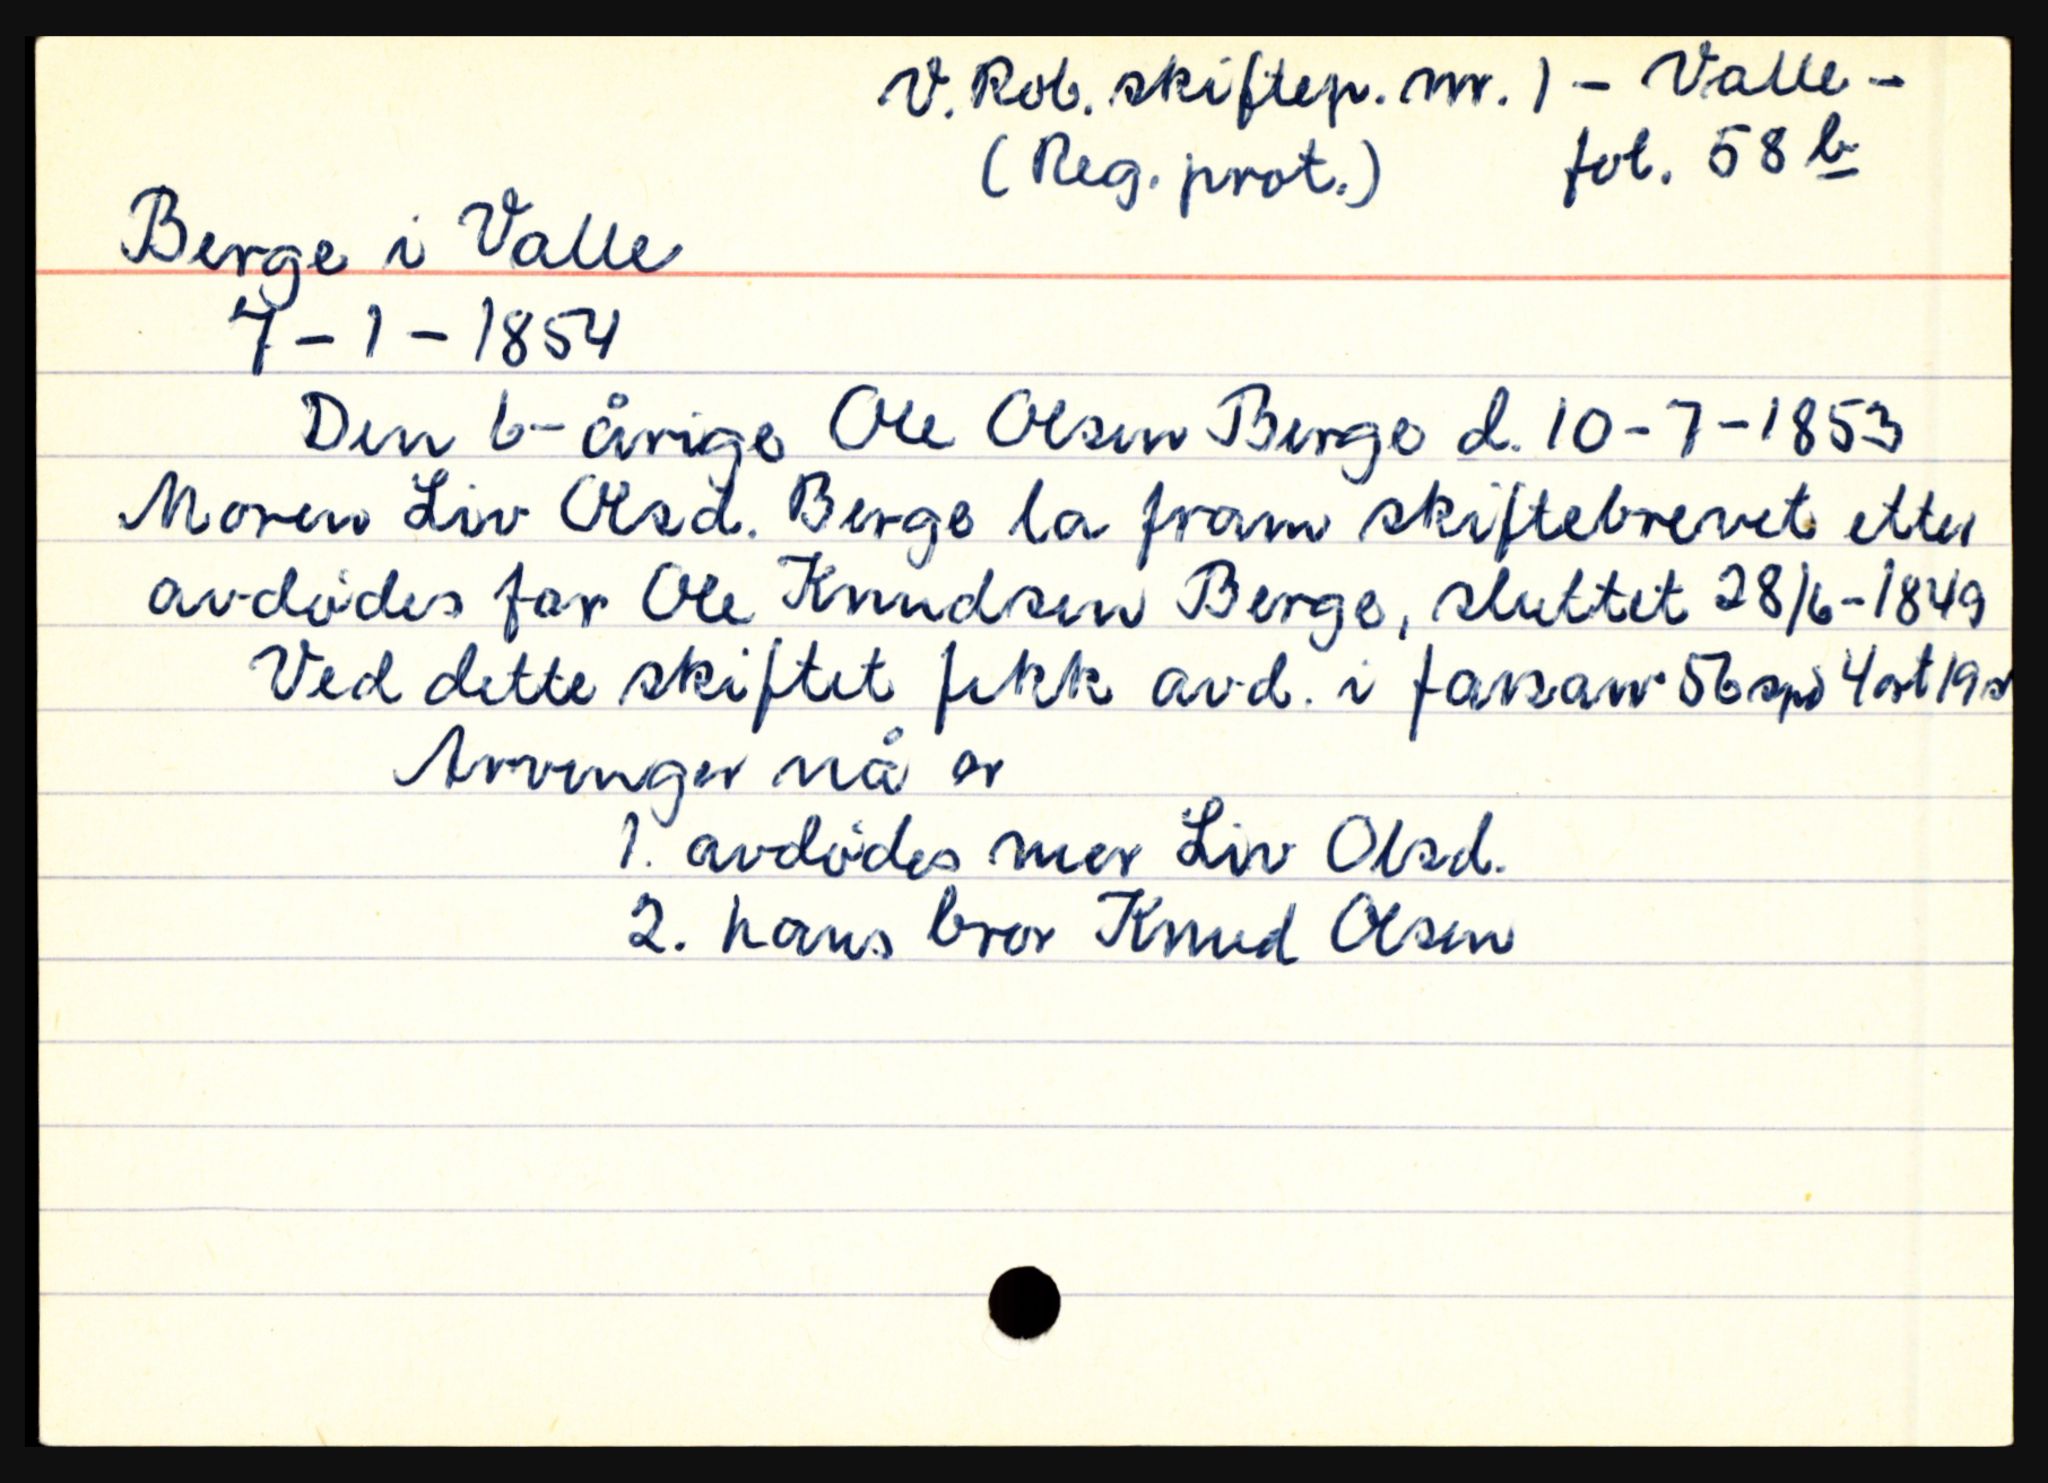 V. Rob. skiftep. nr. 1 - Valle -
(Reg. prot.) fol. 58 b
Berge i Valle
7 - 1 - 1854
Den 6-årige Ole Olsen Berge d. 10-7-1853
Moren Liv Olsd. Berge la fram skiftebrevet etter
avdødes far Ole Knudsen Berge, sluttet 28/6-1849
Ved dette skiftet fikk avd. i farsarv 56 spd 4 ort 19 s
Arvinger nå er
1. avdødes mor Liv Olsd.
2. hans bror Knud Olsen